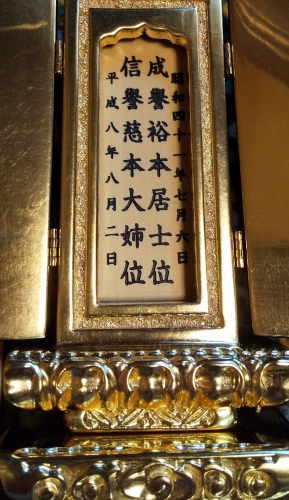 昭和四十一年七月六日
成譽裕本居士位
信譽慈本大姉位
平成八年八月二日